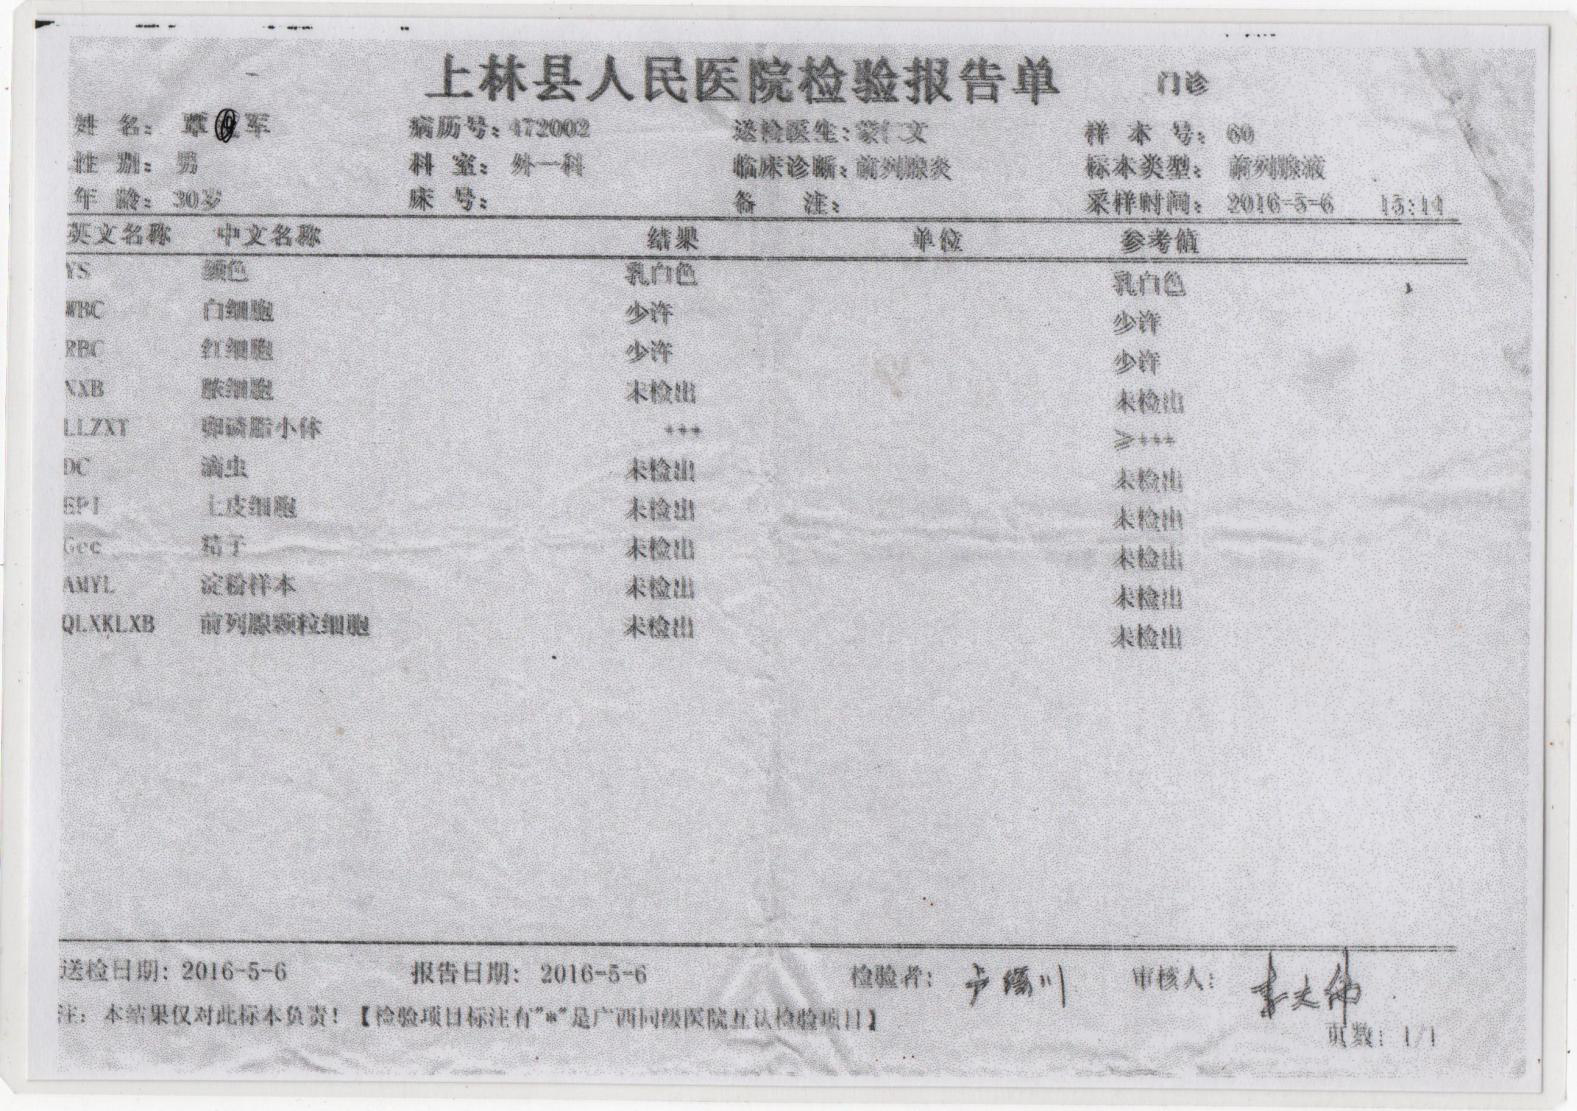 上林县人民医院检验报告单 门诊
姓 名： 覃 军 病历号：472002 送检医生：蒙仁文 样 本 号： 60
性 别： 男 科 室： 外一科 临床诊断：前列腺炎 标本类型： 前列腺液
年 龄： 30岁 床 号： 备 注： 采样时间： 2016-5-6 15:14
英文名称 中文名称 结果 单位 参考值
YS 颜色 乳白色 乳白色
WBC 白细胞 少许 少许
RBC 红细胞 少许 少许
NXB 脓细胞 未检出 未检出
LLZXT 卵磷脂小体 +++ ≥+++
DC 滴虫 未检出 未检出
EPI 上皮细胞 未检出 未检出
Gec 精子 未检出 未检出
AMYL 淀粉样本 未检出 未检出
QLXKLXB 前列腺颗粒细胞 未检出 未检出
送检日期: 2016-5-6 报告日期: 2016-5-6 检验者: 审核人:
注: 本结果仅对此标本负责!【检验项目标注有"*"是广西同级医院互认检验项目】
页数: 1/1